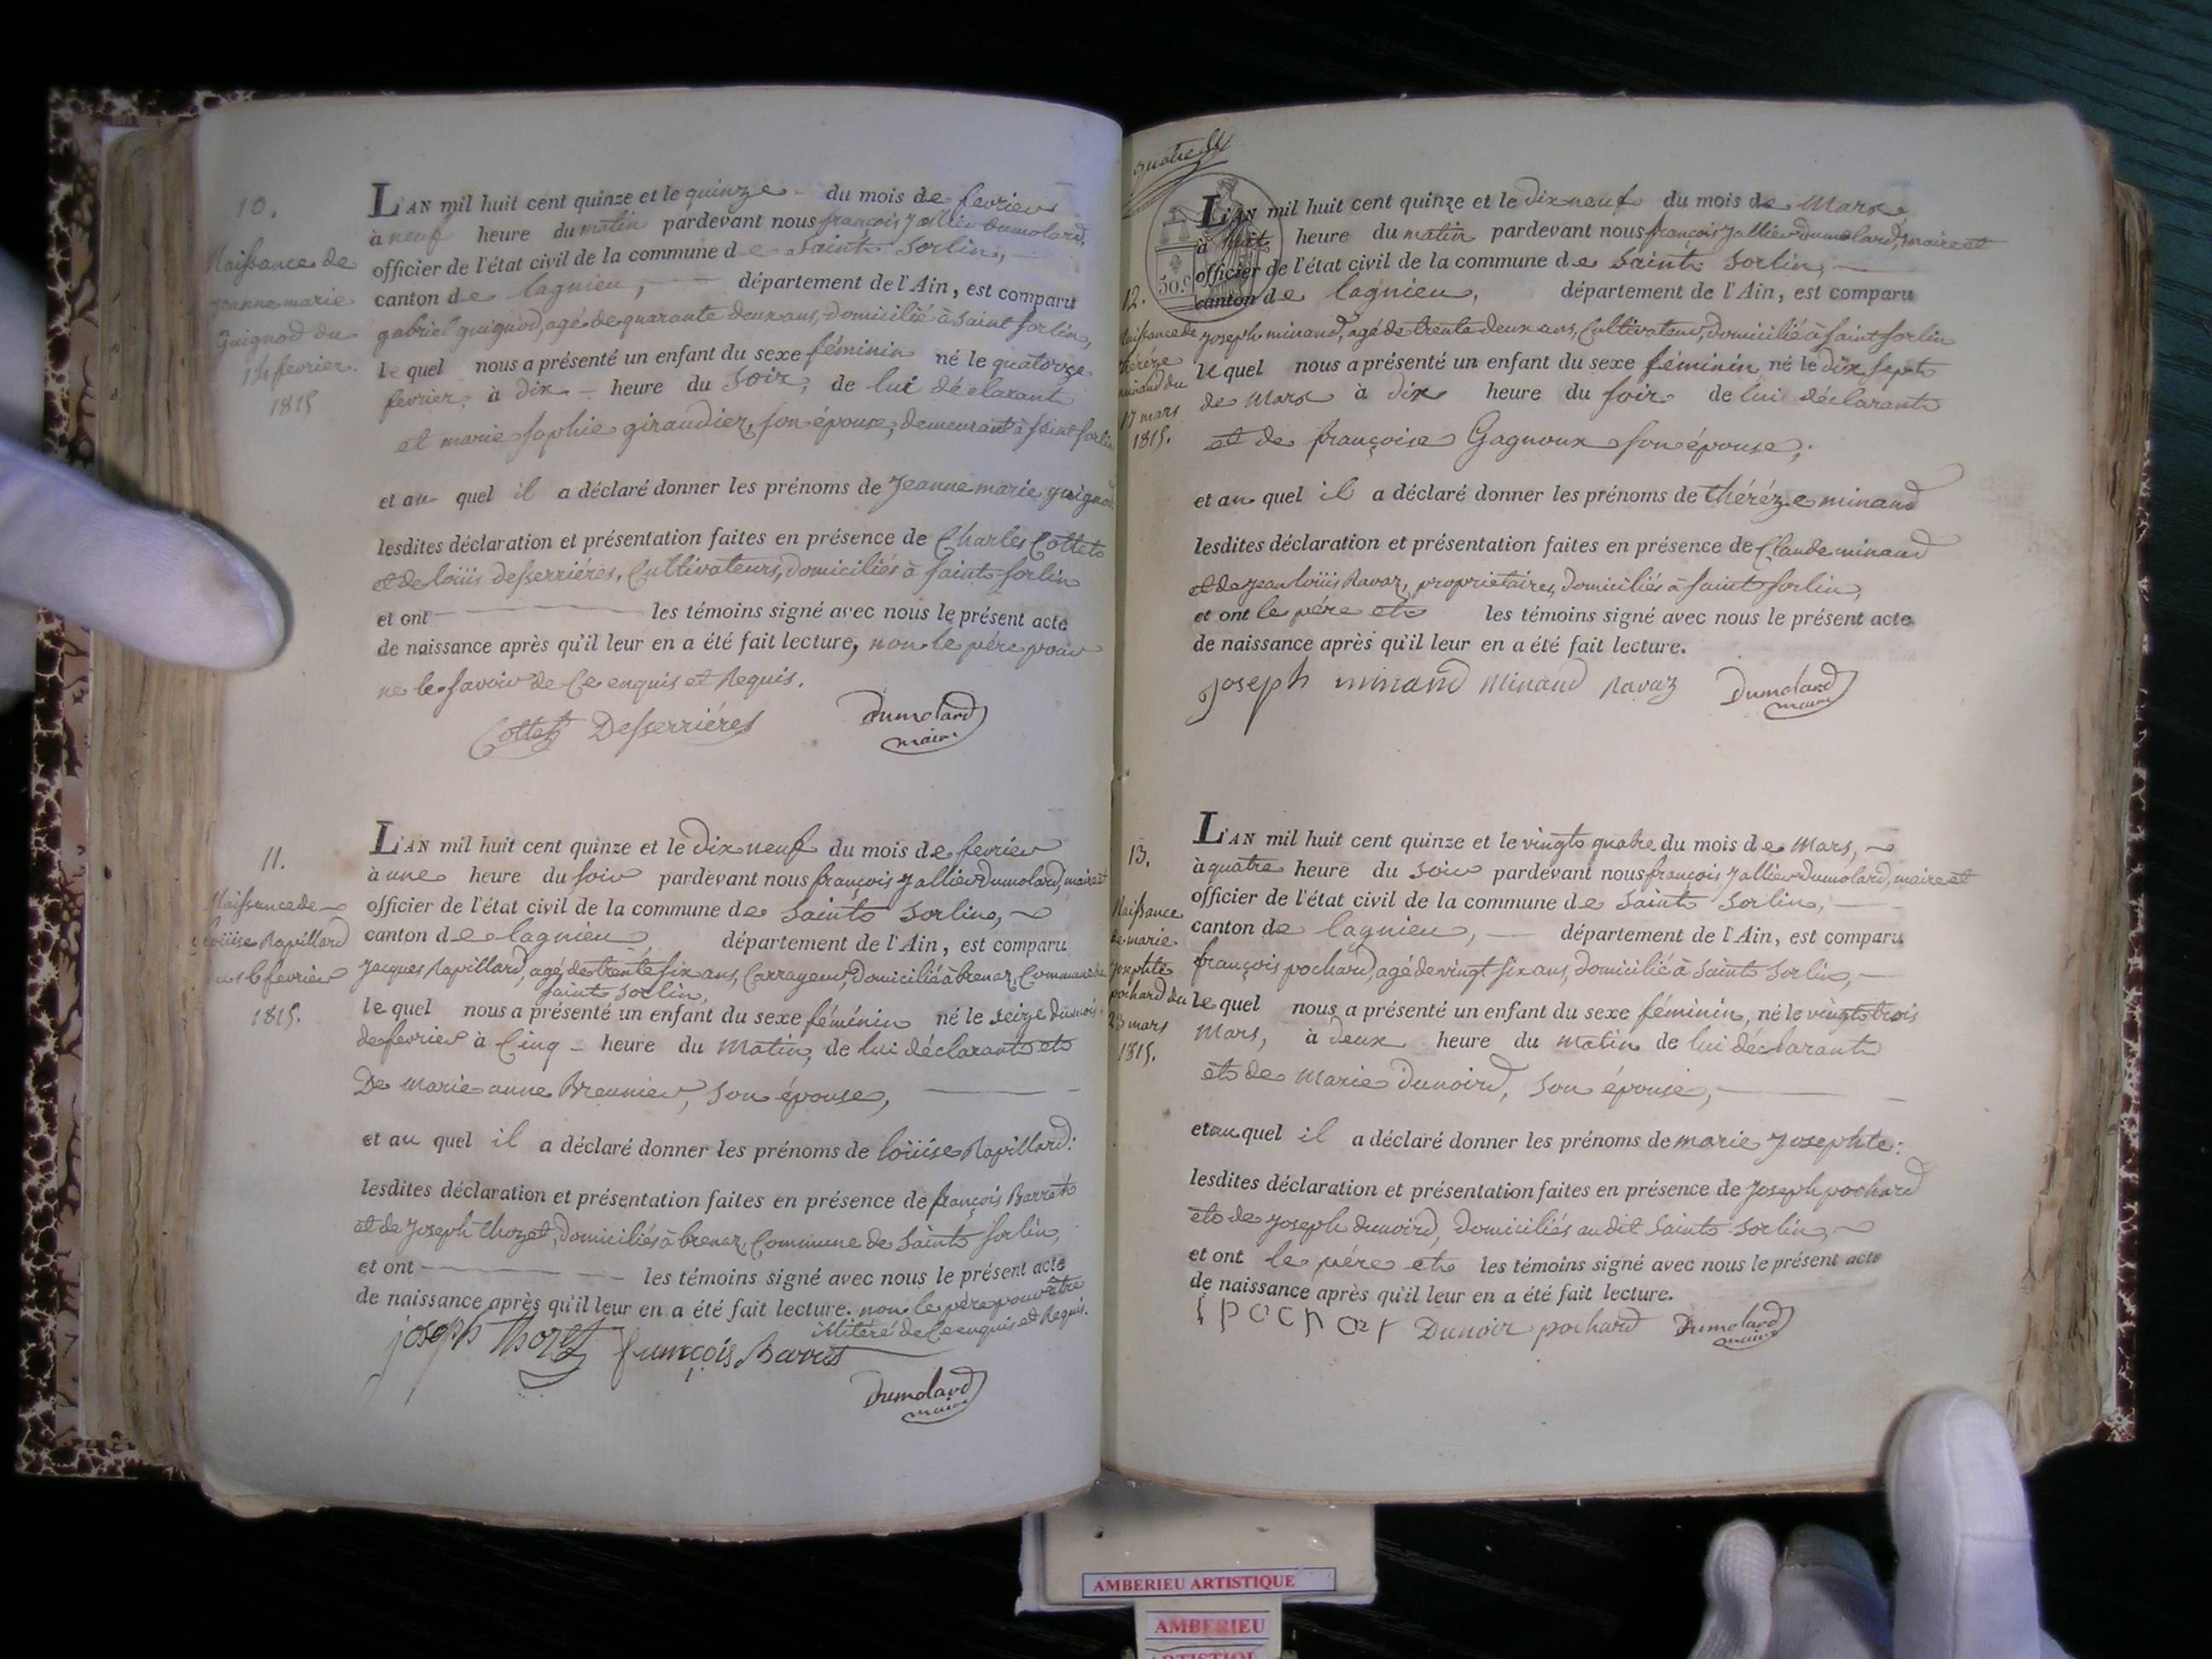 10.
Naissance de
jeanne marie
Guignod du
14 fevrier
1815
L'AN mil huit cent quinze et le quinze du mois de fevrier
à neuf heure du matin pardevant nous françois Jallier dumolard,
officier de l'état civil de la commune de Saint Sorlin,
canton de lagnieu, département de l'Ain, est comparu
gabriel guignod, agé de quarante deux ans, domicilié à saint sorlin,
le quel nous a présenté un enfant du sexe féminin né le quatorze
fevrier, à dix heure du soir, de lui déclarant
et marie sophie giraudier, son épouse, demeurant à saint sorlin
et au quel il a déclaré donner les prénoms de Jeanne marie guignod
lesdites déclaration et présentation faites en présence de Charles Cottet
et de loüis desserriéres, Cultivateurs, domiciliés à saint sorlin
et ont les témoins signé avec nous le présent acte
de naissance après qu'il leur en a été fait lecture, non le pére pour
ne le savoir de Ce enquis et Requis.
Cottet Desserriéres Dumolard
maire
11.
Naissance de
loüise Rapillard
du 16 fevrier
1815.
L'AN mil huit cent quinze et le dix neuf du mois de fevrier
à une heure du soir pardevant nous françois Jallier dumolard, maire et
officier de l'état civil de la commune de Saint Sorlin,
canton de lagnieu, département de l'Ain, est comparu
Jacques Rapillard, agé de trente six ans, Carrayeur, domicilié à brenaz, Commune de
saint sorlin,
le quel nous a présenté un enfant du sexe féminin né le seize du mois
de fevrier à Cinq heure du Matin, de lui déclarant et
De Marie anne Breunier, son épouse,
et au quel il a déclaré donner les prénoms de loüise Rapillard:
lesdites déclaration et présentation faites en présence de françois Barret
et de Joseph thozet, domiciliés à brenaz, Commune de Saint sorlin,
et ont les témoins signé avec nous le présent acte
de naissance après qu'il leur en a été fait lecture. non le pére pour être
illitéré de Ce enquis et Requis.
joseph thozet françois Barret
Dumolard
maire
50.c
12.
Naissance de
thérèze
minand du
17 mars
1815.
L'AN mil huit cent quinze et le dix neuf du mois de Mars
à huit heure du matin pardevant nous françois Jallier dumolard, maire et
officier de l'état civil de la commune de Saint Sorlin,
canton de lagnieu, département de l'Ain, est comparu
Joseph minand, agé de trente deux ans, Cultivateur, domicilié à saint sorlin
le quel nous a présenté un enfant du sexe féminin, né le dix sept
de Mars à dix heure du soir de lui déclarant
et de françoise Gagnoux son épouse,
et au quel il a déclaré donner les prénoms de théréze minand
lesdites déclaration et présentation faites en présence de Claude minand
et de jean loüis Ravaz, proprietaires, domiciliés à saint sorlin,
et ont le pére et les témoins signé avec nous le présent acte
de naissance après qu'il leur en a été fait lecture.
Joseph minand Minand Ravaz Dumolard
maire
13.
Naissance
de marie
josephte
pochard du
23 mars
1815.
L'AN mil huit cent quinze et le vingt quatre du mois de Mars,
à quatre heure du soir pardevant nous françois Jallier dumolard, maire et
officier de l'état civil de la commune de Saint Sorlin,
canton de lagnieu, département de l'Ain, est comparu
françois pochard, agé de vingt six ans, domicilié à saint sorlin,
le quel nous a présenté un enfant du sexe féminin, né le vingt trois
Mars, à deux heure du matin de lui déclarant
et de Marie Dunoird, son épouse,
et au quel il a déclaré donner les prénoms de marie Josephte:
lesdites déclaration et présentation faites en présence de Joseph pochard
et de Joseph dunoird, domiciliés audit Saint Sorlin,
et ont le pére et les témoins signé avec nous le présent acte
de naissance après qu'il leur en a été fait lecture.
Dunoir pochard Dumolard
maire
AMBERIEU ARTISTIQUE
AMBERIEU
ARTISTIQUE